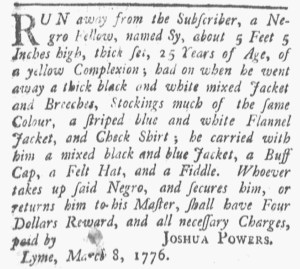 RUN away from the Subscriber, a Ne-
gro Fellow, named Sy, about 5 Feet 5
Inches high, thick set, 25 Years of Age, of
a yellow Complexion; had on when he went
away a thick black and white mixed Jacket
and Breeches, Stockings much of the same
Colour, a striped blue and white Flannel
Jacket, and Check Shirt; he carried with
him a mixed black and blue Jacket, a Buff
Cap, a Felt Hat, and a Fiddle. Whoever
takes up said Negro, and secures him, or
returns him to his Master, shall have Four
Dollars Reward, and all necessary Charges,
paid by JOSHUA POWERS.
Lyme, March 8, 1776.